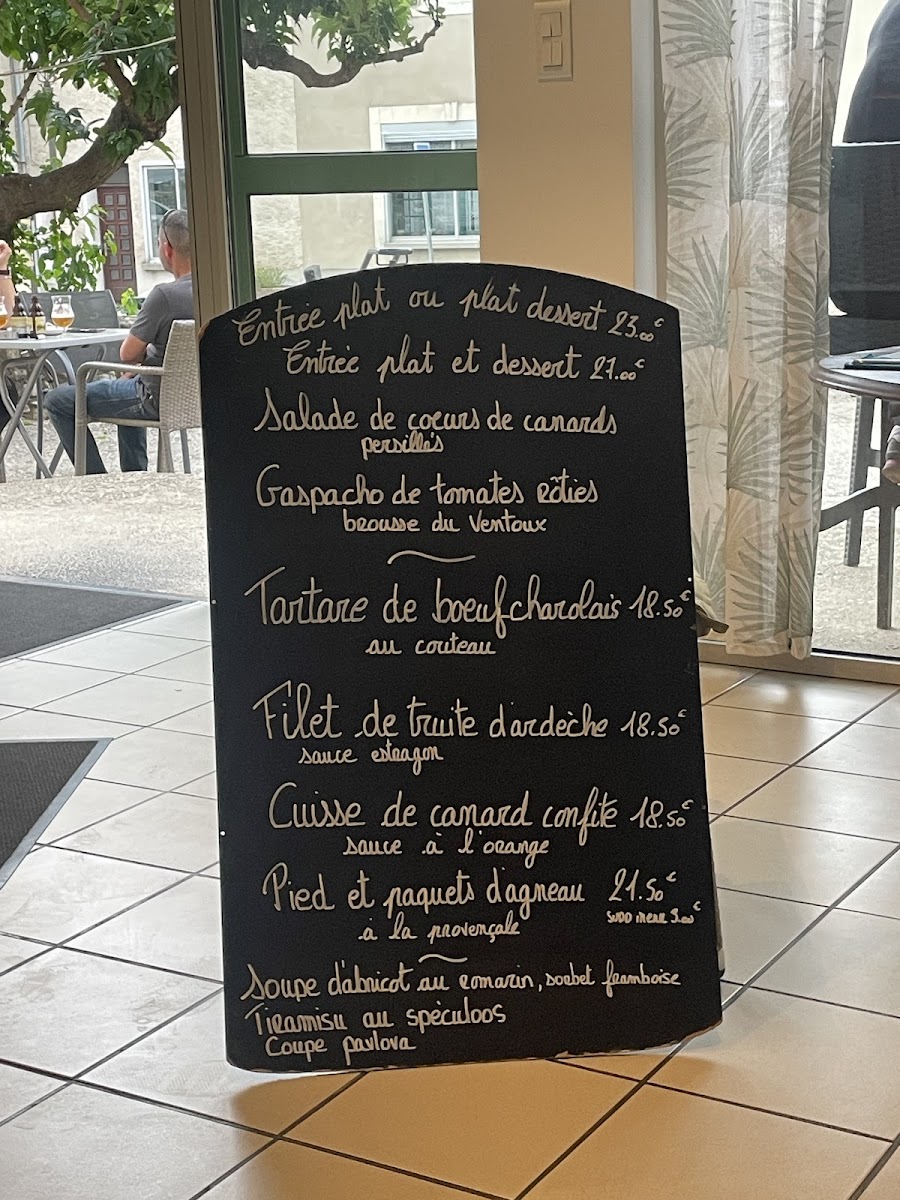 Entrée plat ou plat dessert 23.00€
Entrée plat et dessert 27.00€
Salade de coeurs de canards
persillés
Gaspacho de tomates rôties
brousse du Ventoux
Tartare de boeuf charolais 18.50€
au couteau
Filet de truite d'ardèche 18.50€
sauce estragon
Cuisse de canard confite 18.50€
sauce à l'orange
Pied et paquets d'agneau 21.50€
à la provençale
Soupe d'abricot au romarin, sorbet framboise
Tiramisu au spèculoos
Coupe pavlova